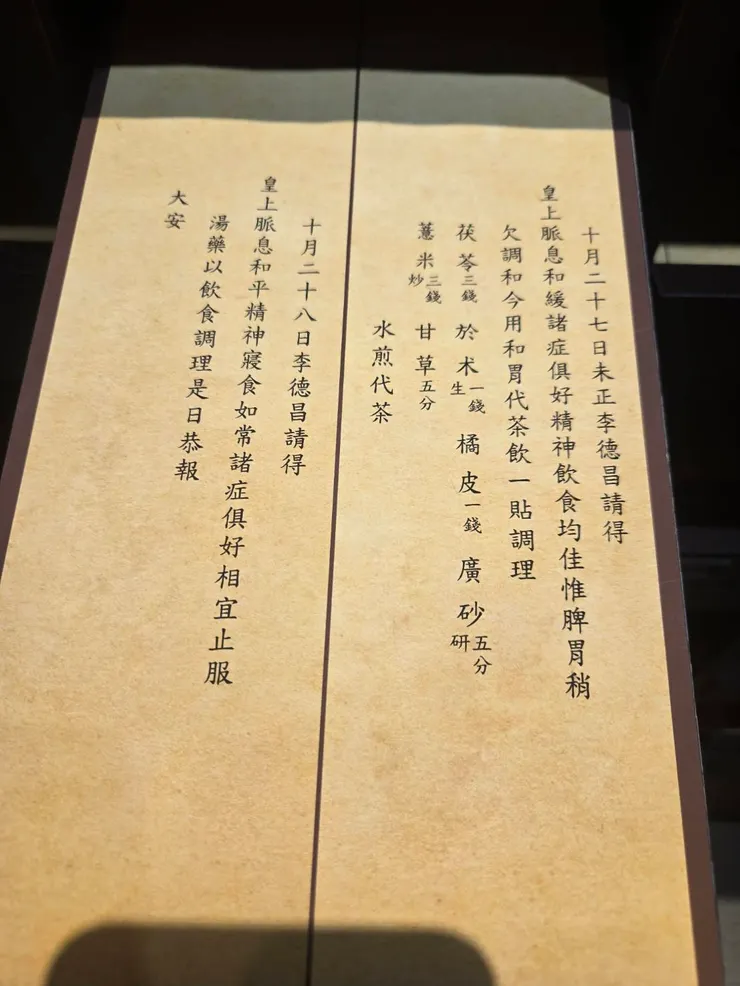 十月二十七日未正李德昌請得
皇上脈息和緩諸症俱好精神飲食均佳惟脾胃稍
欠調和今用和胃代茶飲一貼調理
茯苓三錢 於朮一錢生 橘皮一錢 廣砂五分研
薏米三錢炒 甘草五分
水煎代茶
十月二十八日李德昌請得
皇上脈息和平精神寢食如常諸症俱好相宜止服
湯藥以飲食調理是日恭報
大安